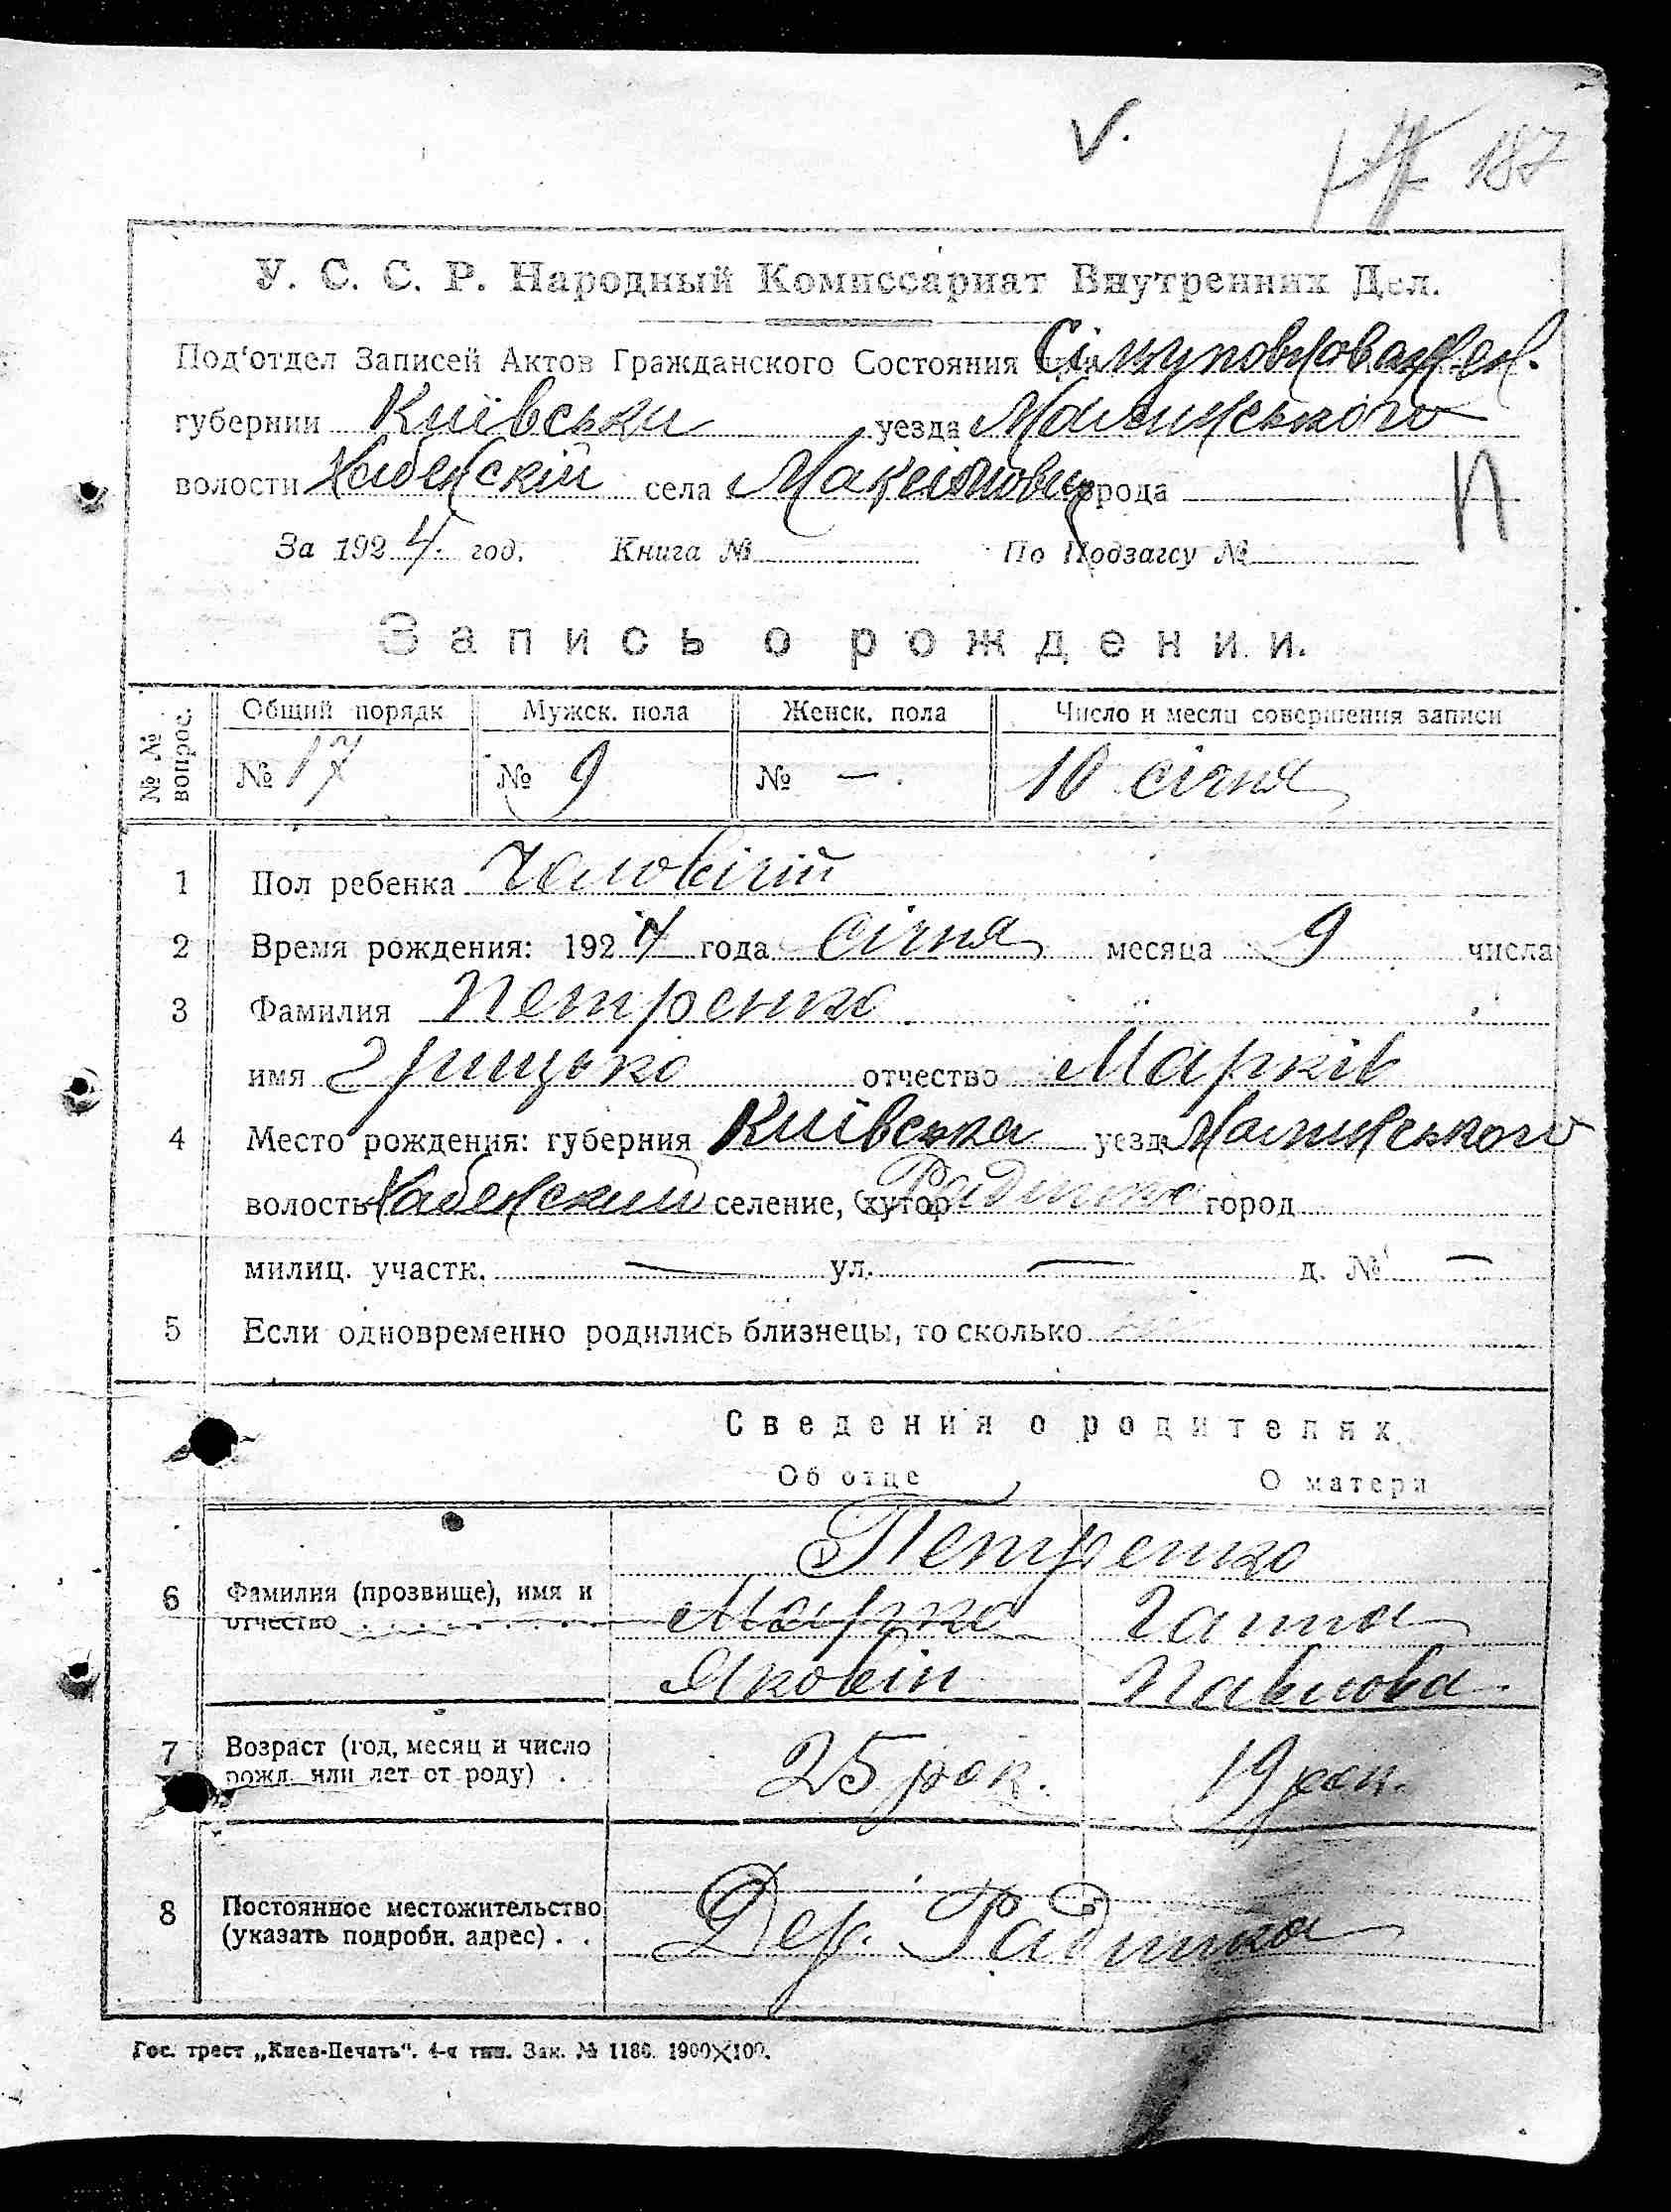 V.
187
У. С. С. Р. Народный Комиссариат Внутренних Дел.
Под'отдел Записей Актов Гражданского Состояния при
губернии Київськи уезда Малинського
волости Хабенскій села Максімович города
За 1924 год. Книга № По Подзагсу №
П
Запись о рождении.
№ № вопрос. Общий порядк Мужск. пола Женск. пола Число и месяц совершения записи
№ 17 № 9 № — 10 січня
1 Пол ребенка Чоловічій
2 Время рождения: 1924 года січня месяца 9 числа
3 Фамилия Петренко
имя Грицько отчество Марків
4 Место рождения: губерния Київська уезд Малинського
волость Хабенский селение, хутор Радинка город
милиц. участк. — ул. — д. № —
5 Если одновременно родились близнецы, то сколько
Сведения о родителях
Об отце О матери
Петренко
6 Фамилия (прозвище), имя и Марко Ганна
отчество
Яковін Павлова
7 Возраст (год, месяц и число 25 рок. 19 рок.
рожд. или лет от роду)
8 Постоянное местожительство
(указать подробн. адрес) Дер. Радинка
Гос. трест „Киев-Печать". 4-я тип. Зак. № 1180. 1900×100.